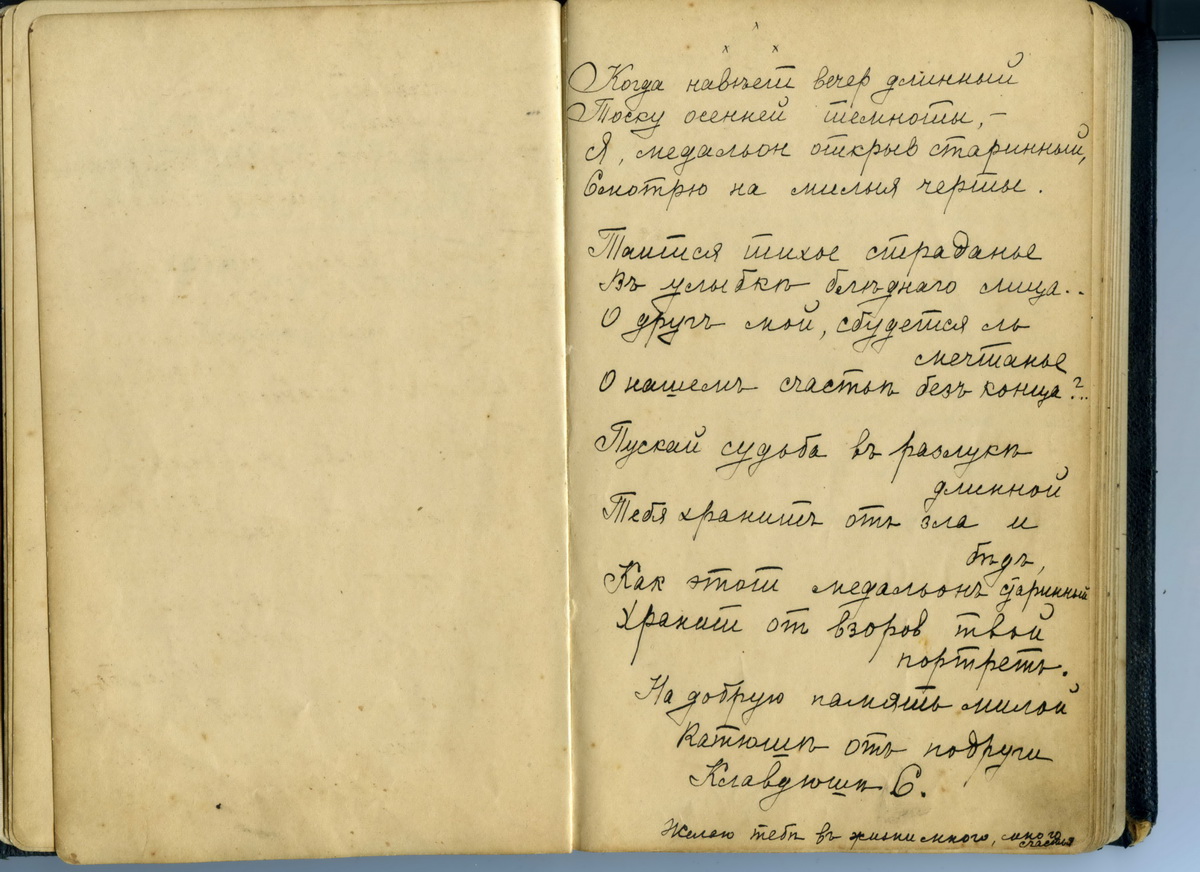 х х х
Когда навѣет вечер длинный
Тоску осенней темноты, –
Я, медальон открыв старинный,
Смотрю на милыя черты.
Таится тихое страданье
Въ улыбкѣ блѣднаго лица..
О другъ мой, сбудется ль
мечтанье
О нашемъ счастьѣ безъ конца?..
Пускай судьба въ разлукѣ
длинной
Тебя хранитъ отъ зла и
бѣдъ,
Как этот медальонъ старинный
Хранит от взоров твой
портретъ.
На добрую память милой
Катюшѣ отъ подруги
Клавдюшѣ С.
Желаю тебѣ въ жизни много, много
счастья